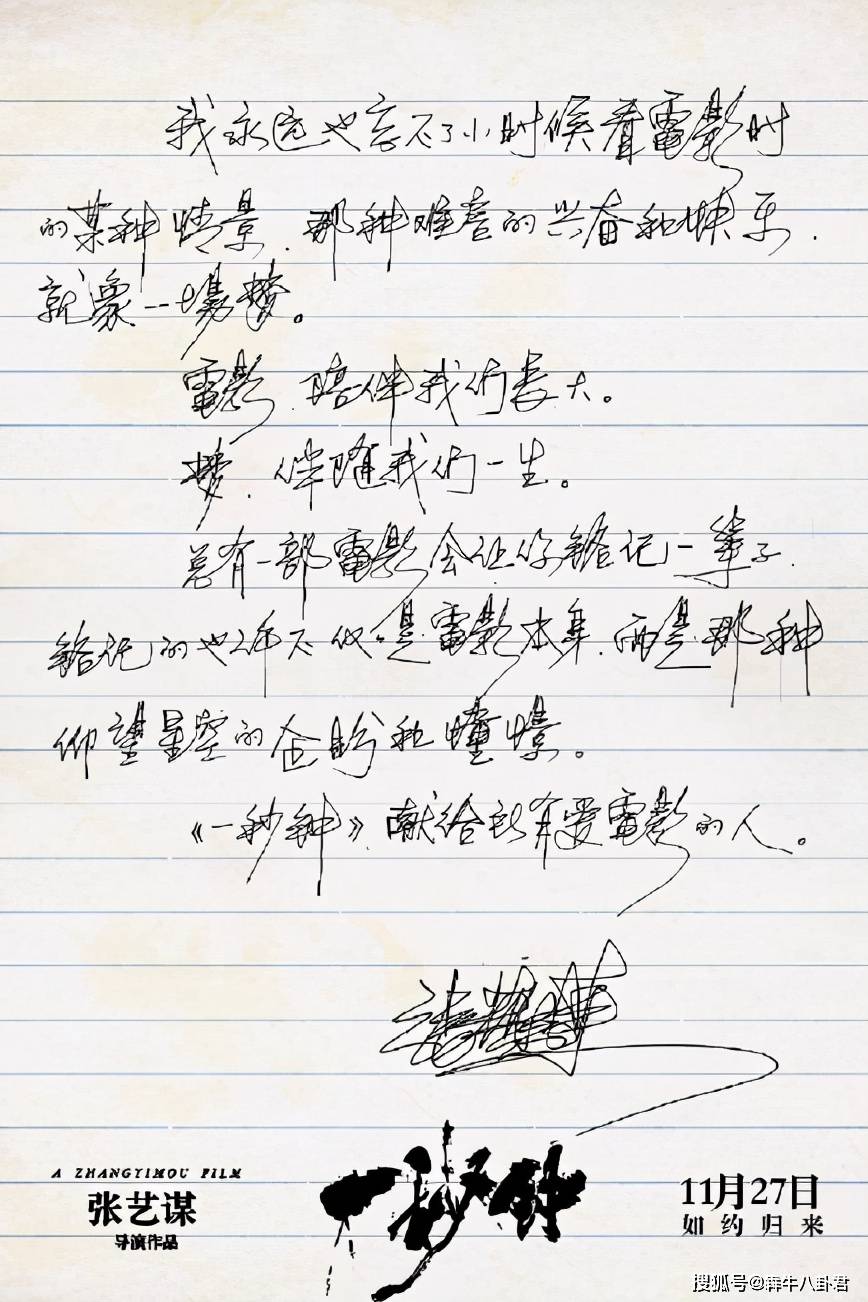 我永远也忘不了小时候看電影时
的某种情景，那种难言的兴奋和快乐，
就象一場梦。
電影，陪伴我们长大。
梦，伴随我们一生。
总有一部電影会让你铭记一辈子，
铭记的也许不仅仅是電影本身，而是那种
仰望星空的企盼和憧憬。
《一秒钟》，献给所有爱電影的人。
张艺谋
A ZHANGYIMOU FILM
张艺谋
导演作品
一秒钟
11月27日
如约归来
搜狐号@犇牛八卦君